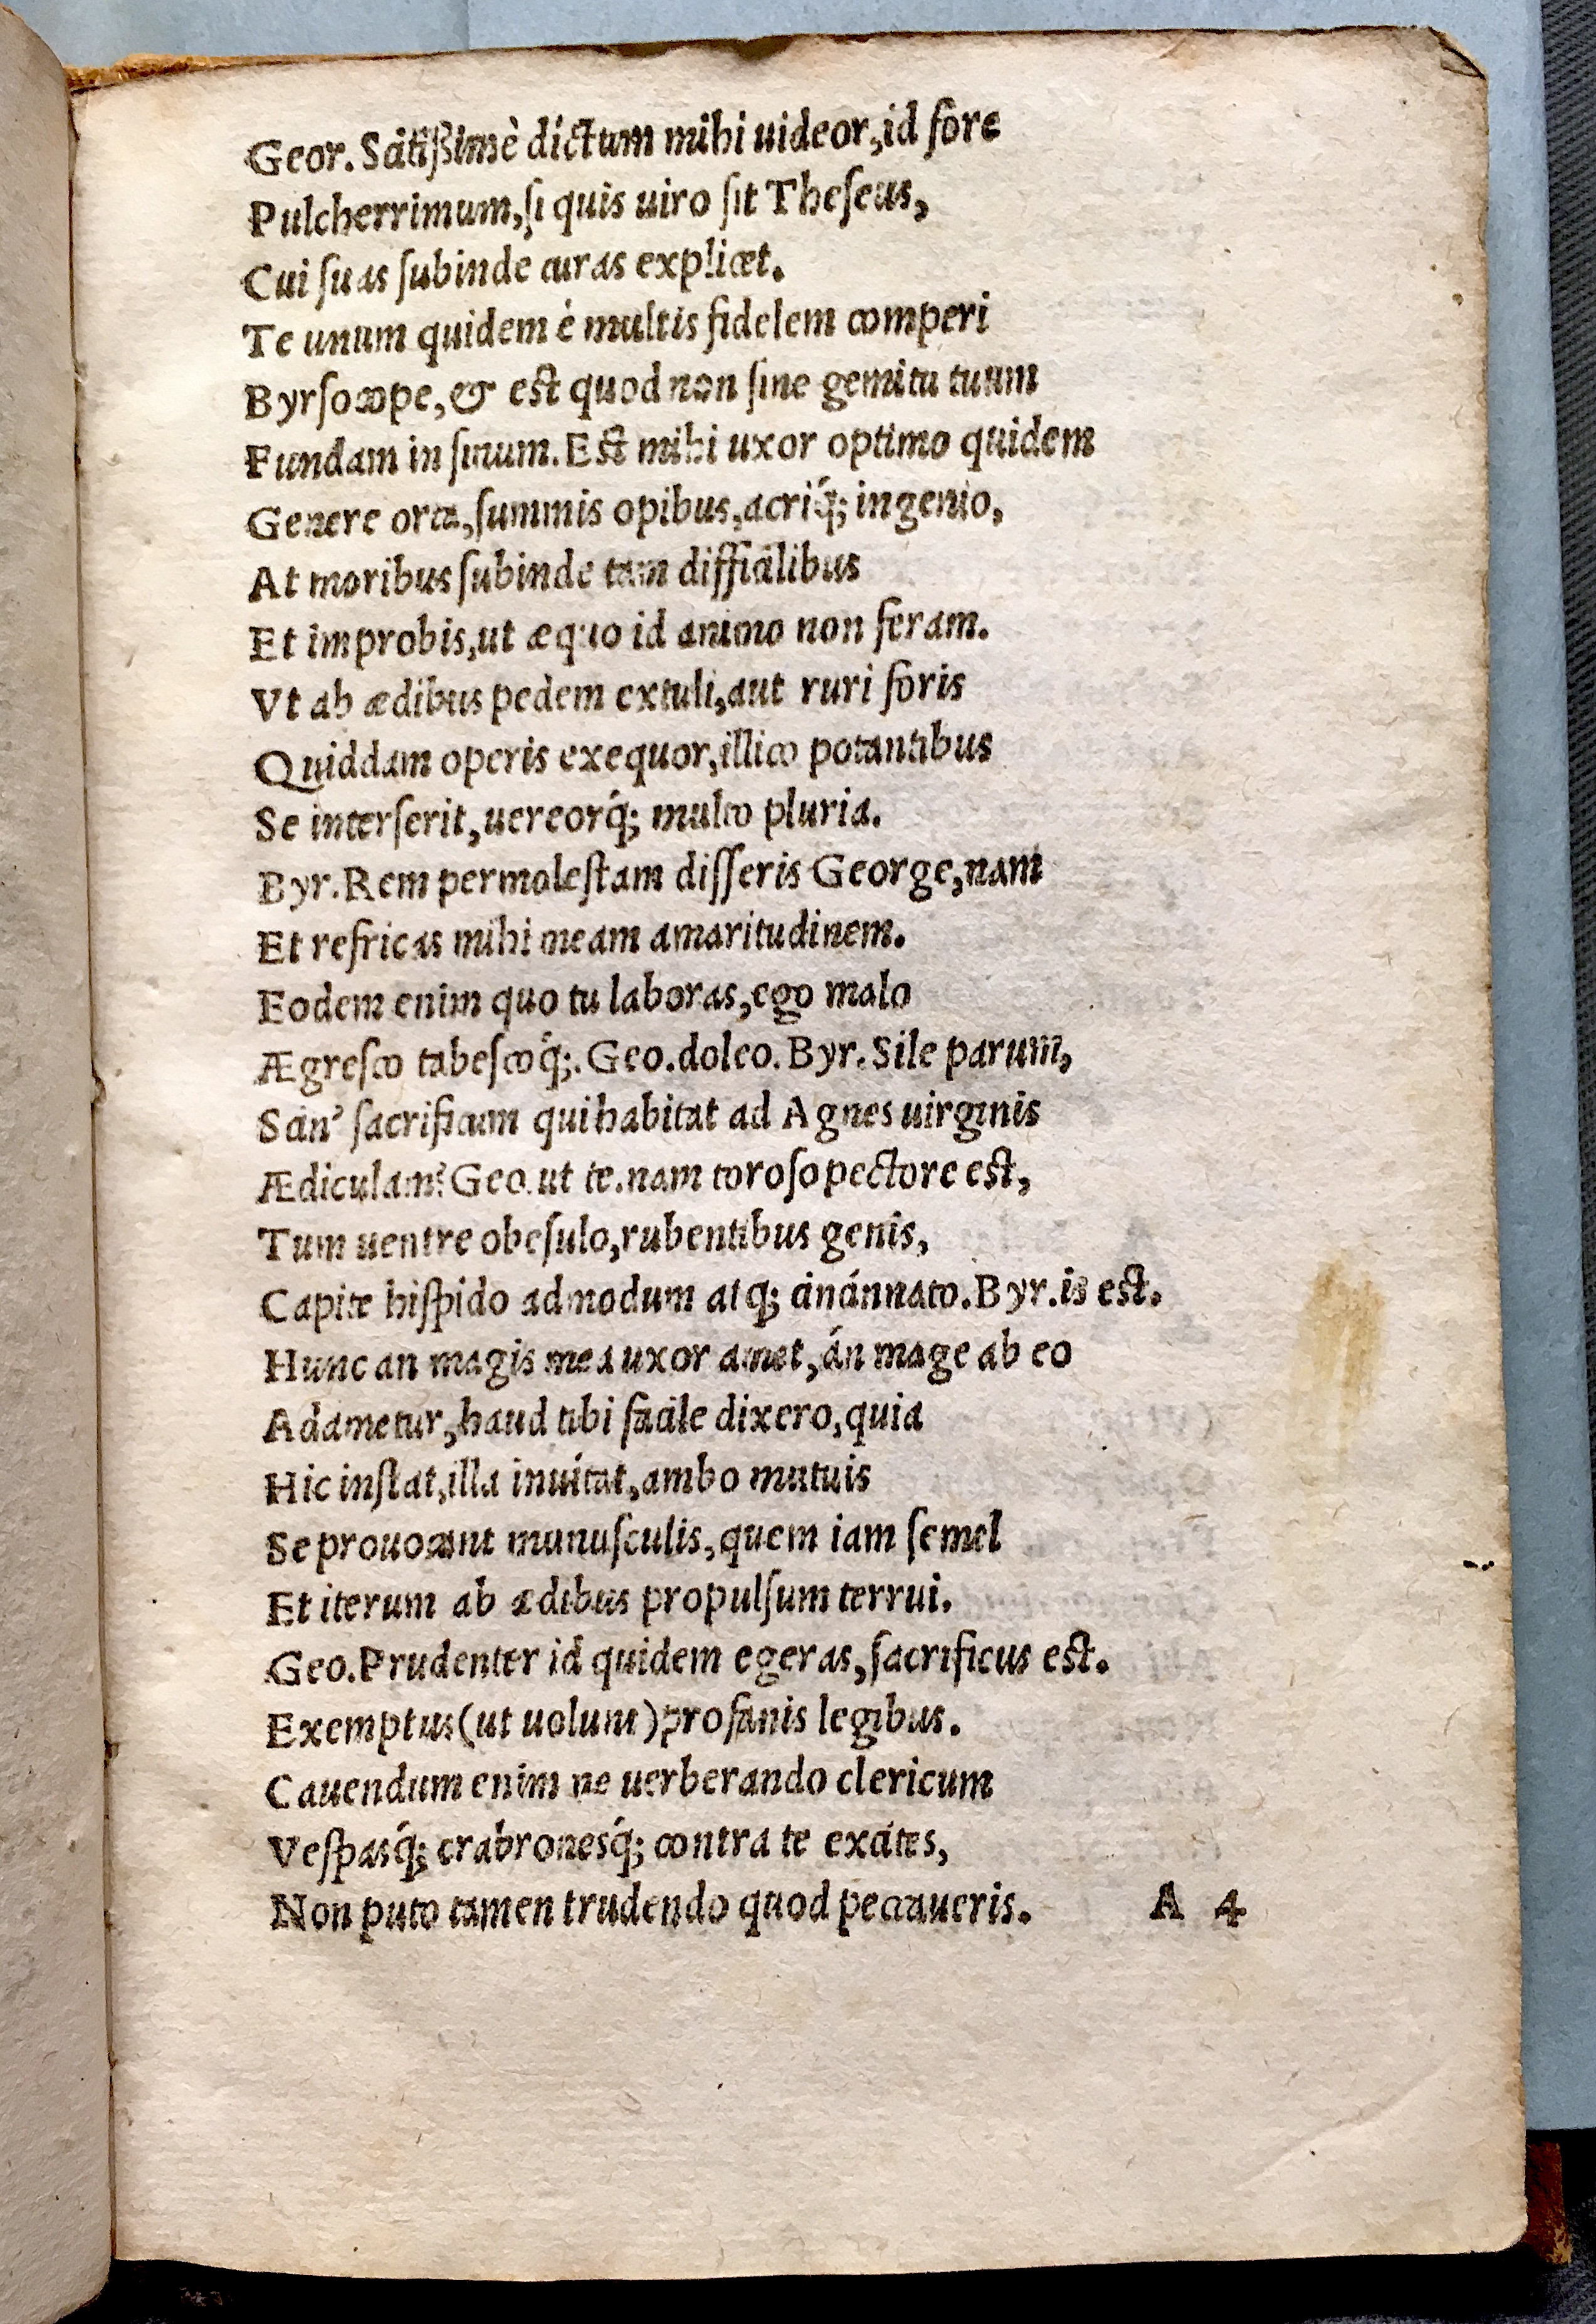 Geor. Scitißimè dictum mihi uideor, id fore
Pulcherrimum, ſi quis uiro ſit Theſeus,
Cui ſuas ſubinde curas explicet.
Te unum quidem è multis fidelem comperi
Byrſocope, & eſt quod non ſine gemitu tuum
Fundam in ſinum. Eſt mihi uxor optimo quidem
Genere orta, ſummis opibus, acriq́; ingenio,
At moribus ſubinde tam difficilibus
Et improbis, ut æquo id animo non feram.
Vt ab ædibus pedem extuli, aut ruri foris
Quiddam operis exequor, illico potantibus
Se interſerit, uereorq́; multo pluria.
Byr. Rem permoleſtam diſſeris George, nam
Et refricas mihi meam amaritudinem.
Eodem enim quo tu laboras, ego malo
Ægreſco tabeſcoq́;. Geo. doleo. Byr. Sile parum,
Scin' ſacrificum qui habitat ad Agnes uirginis
Ædiculam? Geo. ut te. nam toroſo pectore eſt,
Tum uentre obeſulo, rubentibus genis,
Capite hiſpido admodum atq; cincinnato. Byr. is eſt.
Hunc an magis mea uxor amet, án mage ab eo
Adametur, haud tibi facile dixero, quia
Hic inſtat, illa inuitat, ambo mutuis
Se prouocant munuſculis, quem iam ſemel
Et iterum ab ædibus propulſum terrui.
Geo. Prudenter id quidem egeras, ſacrificus eſt.
Exemptus (ut uolunt) profanis legibus.
Cauendum enim ne uerberando clericum
Veſpasq́; crabronesq́; contra te excites,
Non puto tamen trudendo quod peccaueris. A 4